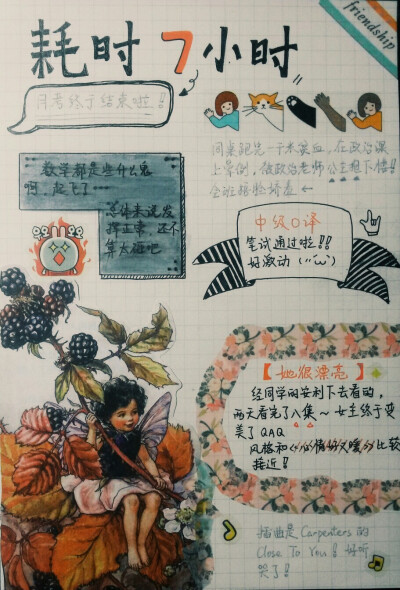 耗时7小时
friendship
月考终于结束啦!!
同桌跑完一千米贫血,在政治课
上晕倒,被政治老师公主抱下楼!!
全班
数学都是些什么鬼
啊,起飞了……
总体来说发
挥正常,还不
算太渣吧
中级口译
笔试通过啦!!
好激动(''ω')
【她很漂亮】
经同学的安利下去看的,
两天看完了八集~女主终于变
美了QAQ
风格和心情好又暖比较
接近!
插曲是Carpenters的
Close To You!好听
哭了!